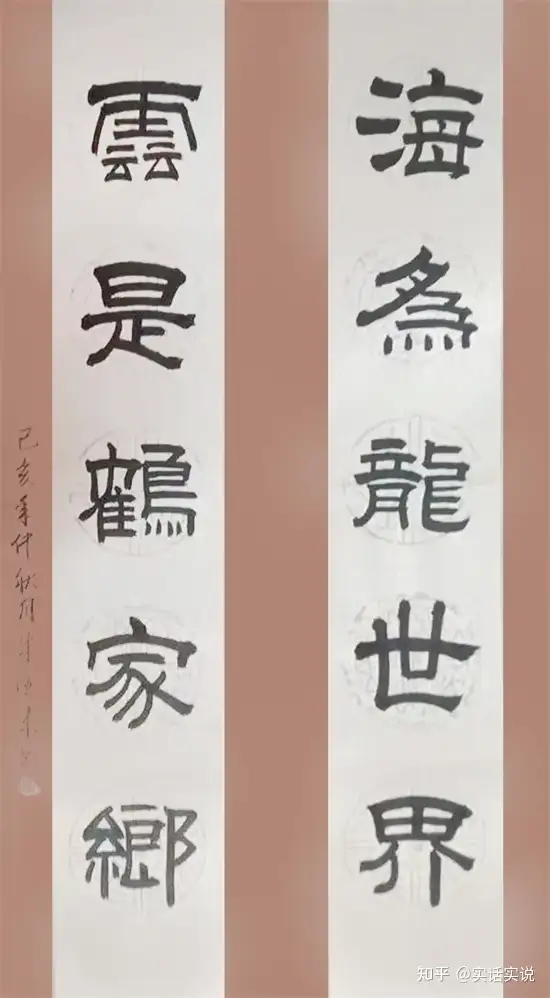 海為龍世界
雲是鶴家鄉
己亥年仲秋月
知乎 @实话实说